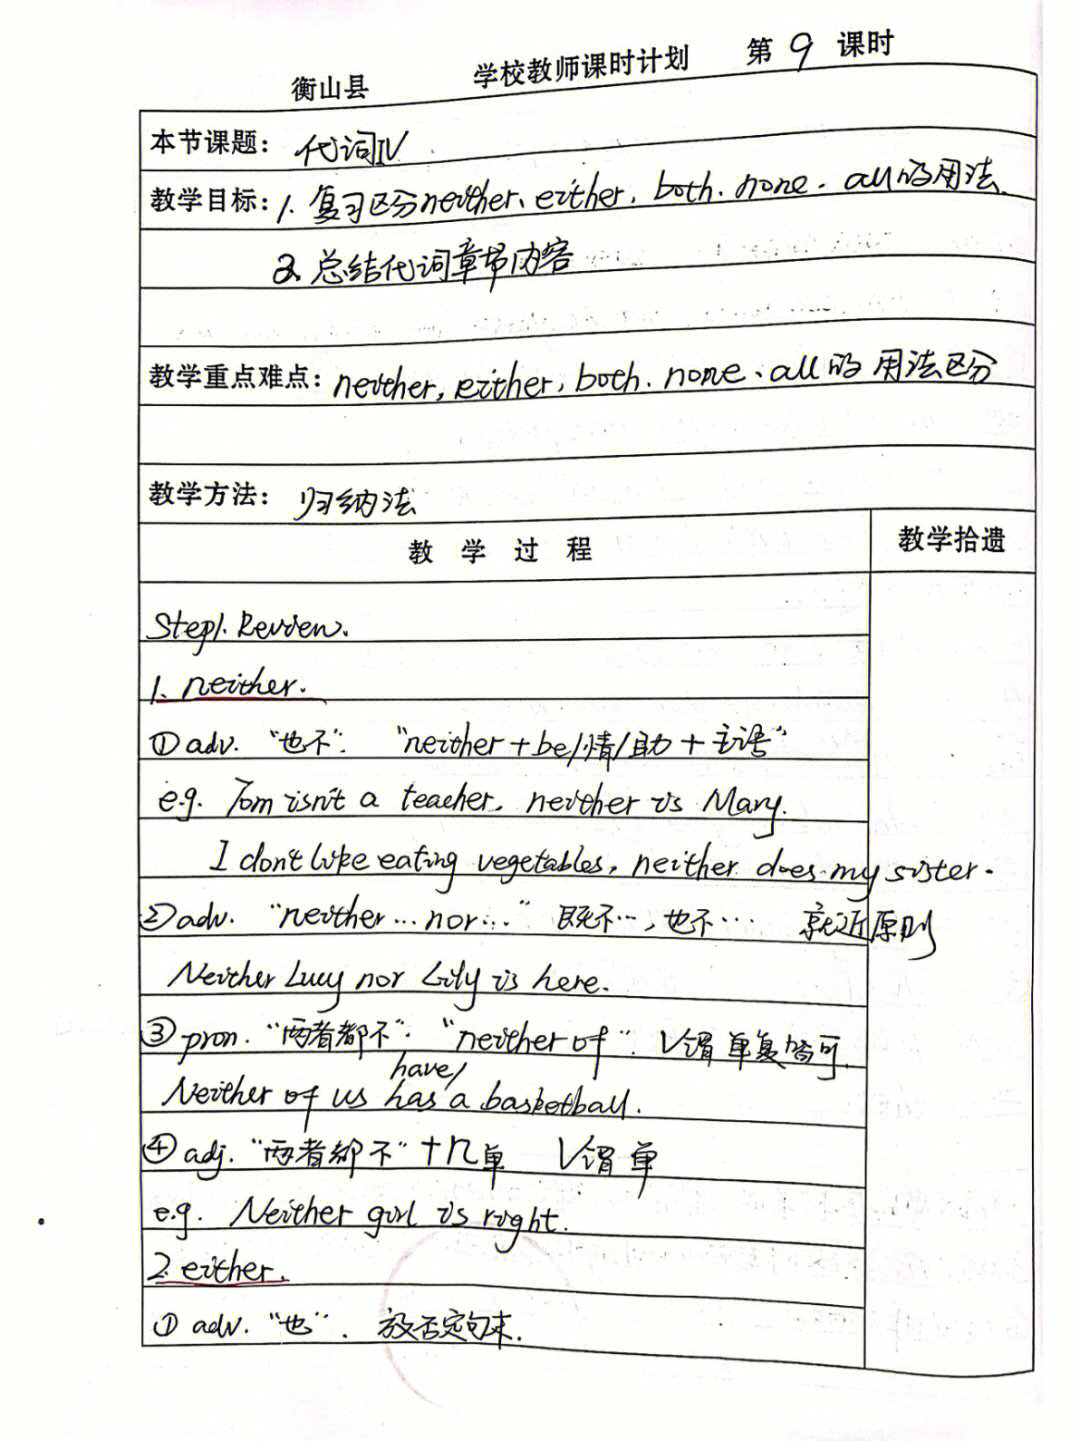 衡山县 学校教师课时计划 第 9 课时
本节课题: 代词Ⅳ
教学目标: 1. 复习区分neither、either、both、none、all的用法.
2. 总结代词章节内容
教学重点难点: neither, either, both、none、all的 用法区分
教学方法: 归纳法
教 学 过 程 教学拾遗
Step1. Review.
1. neither.
① adv. “也不”. “neither + be/情/助 + 主语”
e.g. Tom isn't a teacher, neither is Mary.
I don't like eating vegetables, neither does my sister.
② adv. “neither...nor...” 既不…,也不… 就近原则
Neither Lucy nor Lily is here.
③ pron. “两者都不”. “neither of”. V谓 单复皆可.
have/
Neither of us has a basketball.
④ adj. “两者都不” + n单 V谓 单
e.g. Neither girl is right.
2. either.
① adv. “也”. 放否定句末.